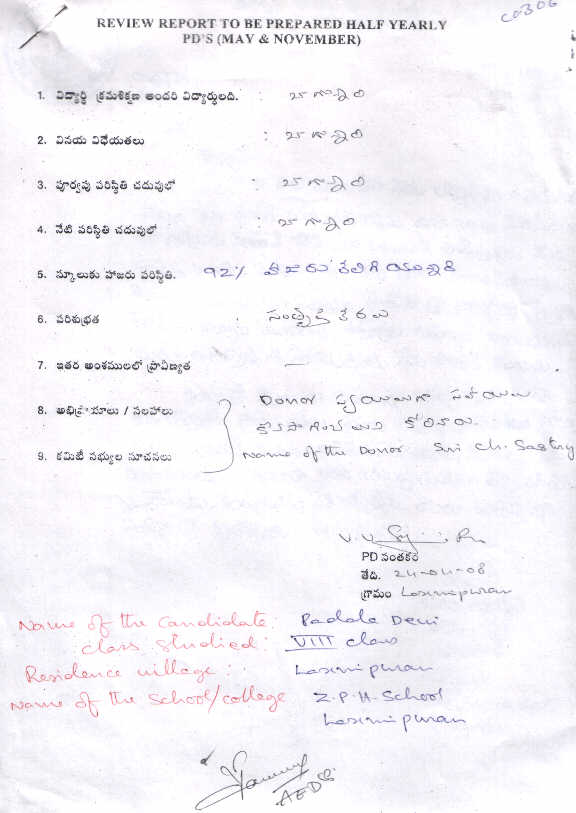 C0306
REVIEW REPORT TO BE PREPARED HALF YEARLY
PD'S (MAY & NOVEMBER)
1. విద్యార్థి క్రమశిక్షణ అందరి విద్యార్థులది. : బాగున్నది
2. వినయ విధేయతలు : బాగున్నది
3. పూర్వపు పరిస్థితి చదువులో : బాగున్నది
4. నేటి పరిస్థితి చదువులో : బాగున్నది
5. స్కూలుకు హాజరు పరిస్థితి. 92% హాజరు కలిగియున్నది
6. పరిశుభ్రత : సంతృప్తికరము
7. ఇతర అంశములలో ప్రావీణ్యత —
8. అభిప్రాయాలు / సలహాలు Donor సహాయము
కొనసాగించమని కోరిక
9. కమిటీ సభ్యుల సూచనలు Name of the Donor Sri Ch. Sastry
PD సంతకం
తేది. 24-04-08
గ్రామం Laxmipuram
Name of the Candidate: Padala Devi
Class Studied: VIII class
Residence village: Laxmipuram
Name of the School/college Z.P.H. School
Laxmipuram